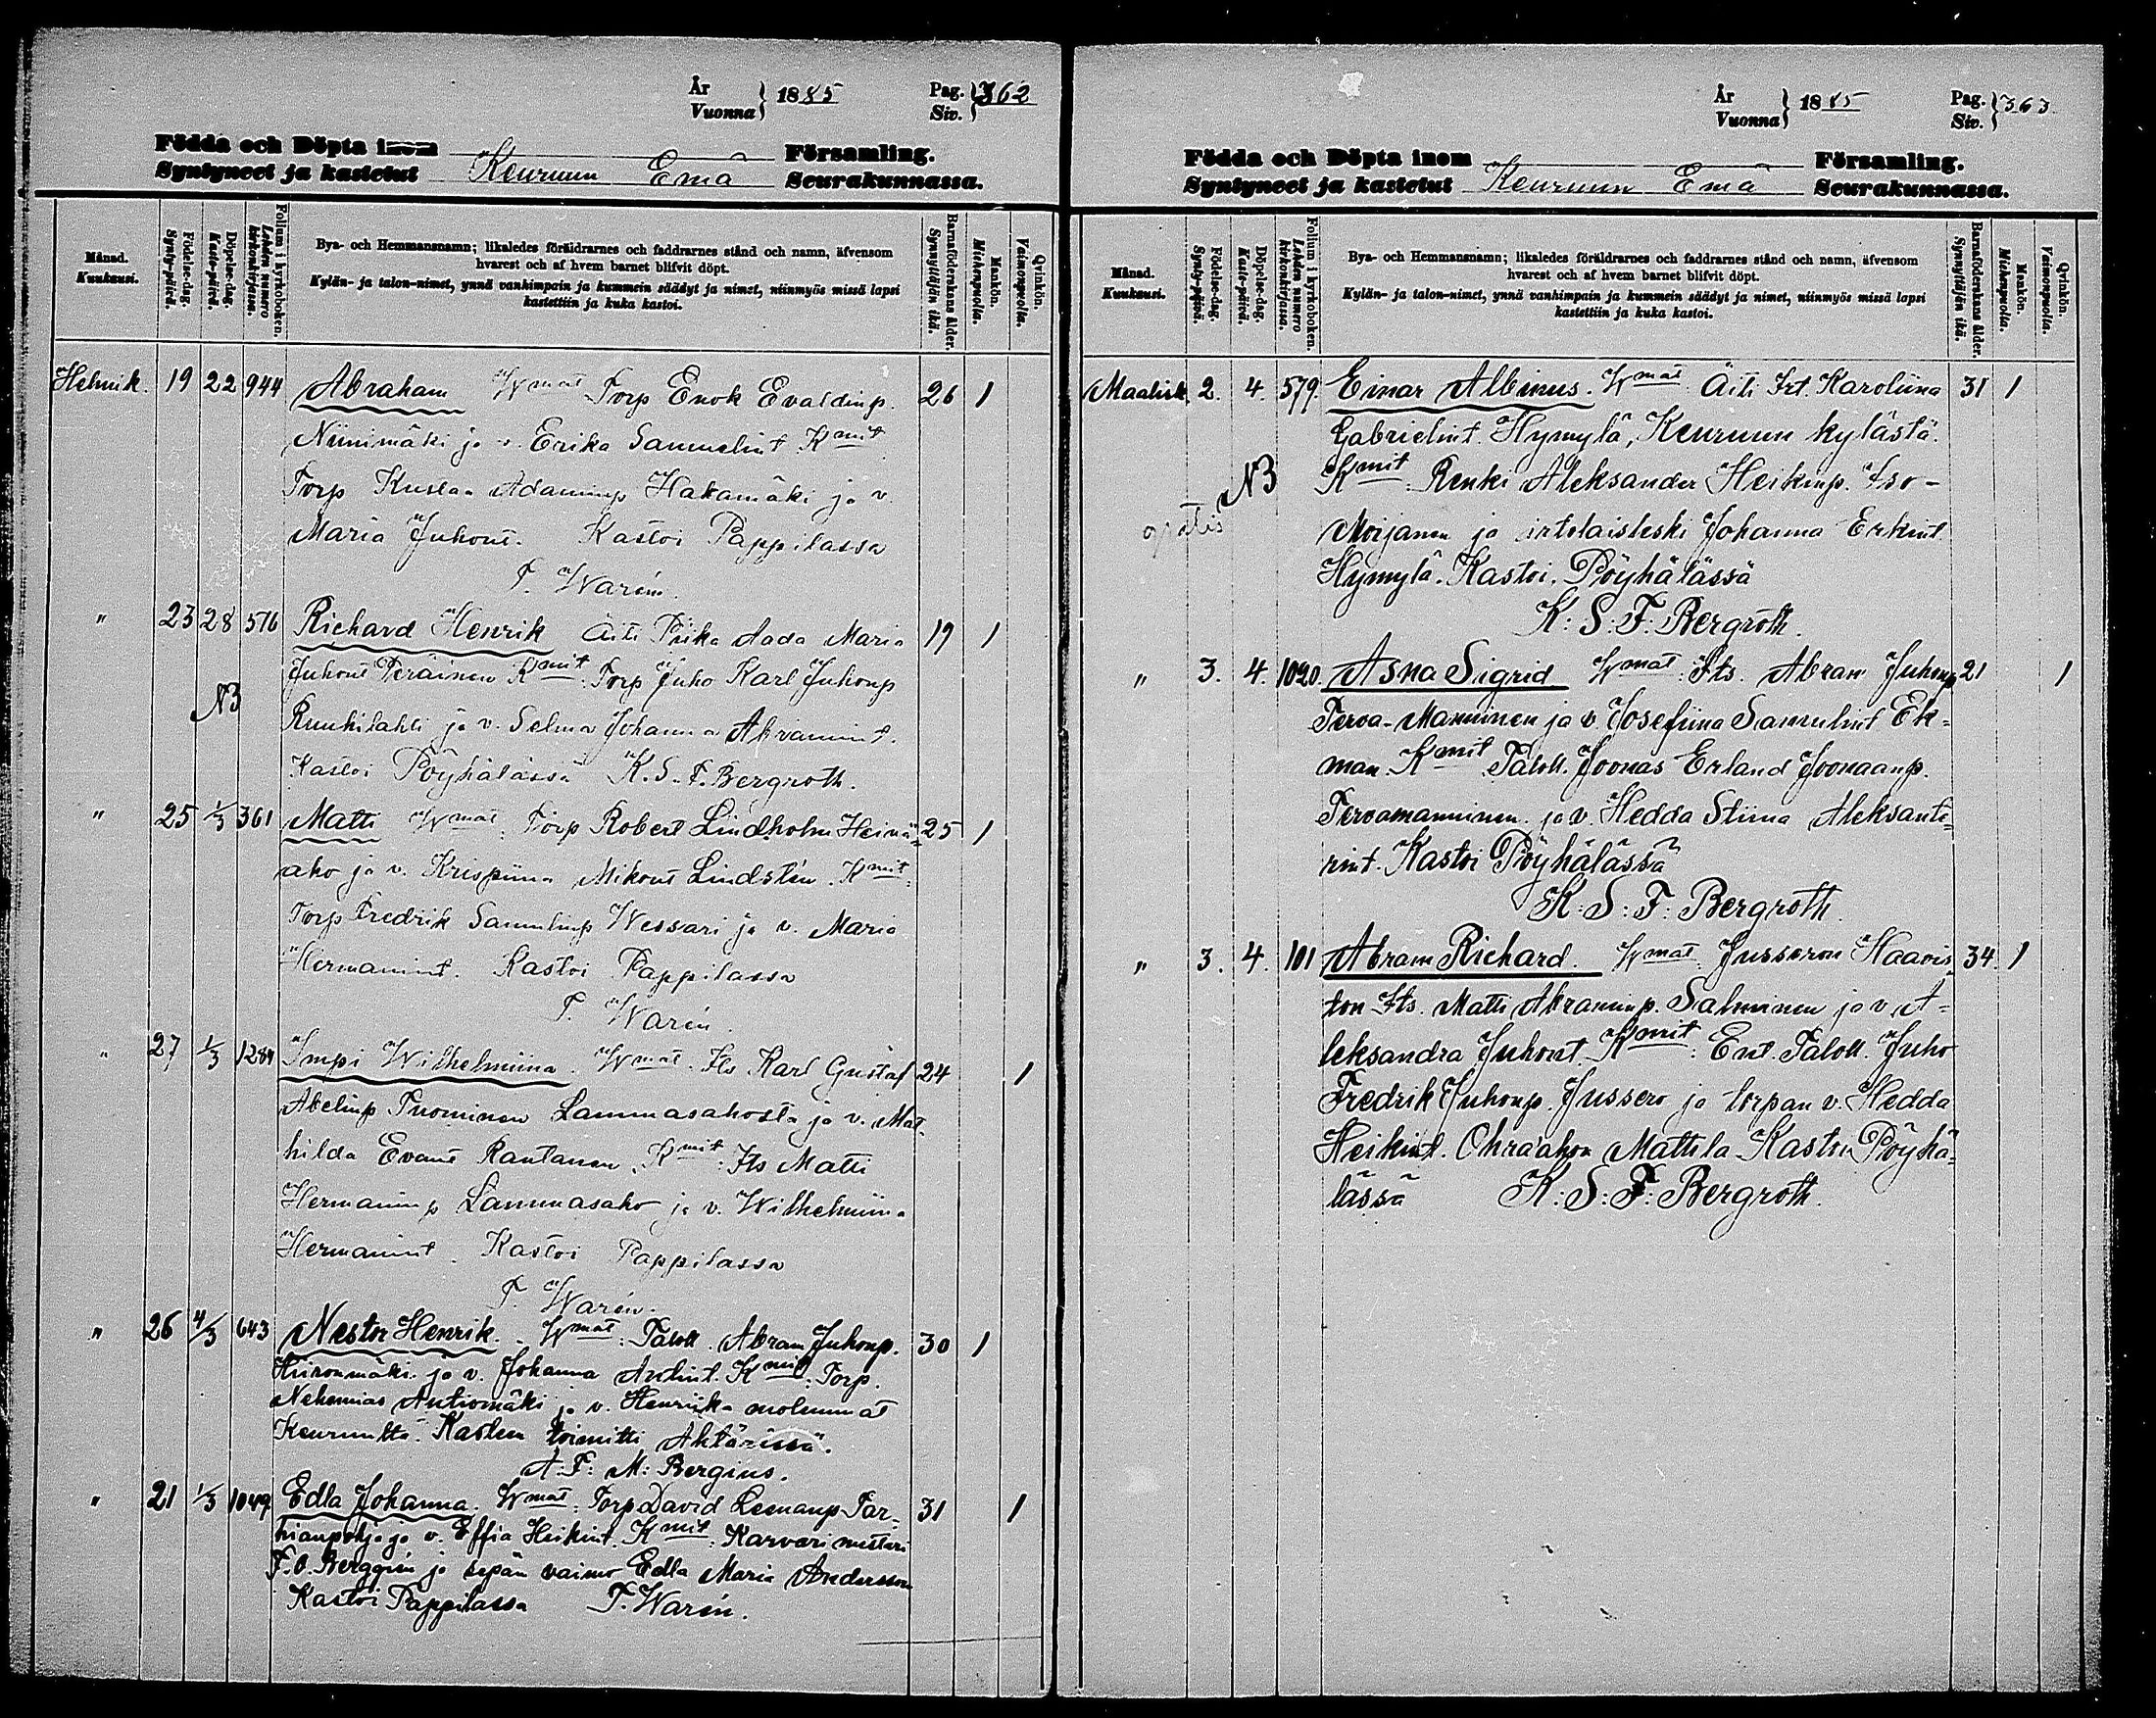 År
Vuonna } 1885
Pag.
Siv. } 362
Födda och Döpta inom Församling.
Syntyneet ja kastetut Keuruun Emä Seurakunnassa.
Månad.
Kuukausi.
Födelse-dag.
Synty-päivä.
Döpelse-dag.
Kaste-päivä.
Folium i kyrkoboken.
Lehden numero
kirkonkirjassa.
Bya- och Hemmansnamn; likaledes föräldrarnes och faddrarnes stånd och namn, äfvensom
hvarest och af hvem barnet blifvit döpt.
Kylän- ja talon-nimet, ynnä vanhimpain ja kummein säädyt ja nimet, niinmyös missä lapsi
kastettiin ja kuka kastoi.
Barnaföderskans ålder.
Synnyttäjän ikä.
Mankön.
Miehenpuolia.
Qvinkön.
Vaimonpuolia.
Helmik. 19 22 944 Abraham Wmat Torp Enok Evaldinp. 26 1
Niinimäki ja v. Erika Samuelint Kmit
Torp Kustaa Adaminp Hakamäki ja v.
Maria Juhont. Kastoi Pappilassa
T. Warén.
" 23 28 576 Richard Henrik Äiti Piika Aada Maria 19 1
Juhont Peräinen Kmit: Torp Juho Karl Juhonp
NB
Ruuhilahti ja v. Selma Johanna Abramint.
Kastoi Pöyhälässä K. S. F. Bergroth.
" 25 1/3 361 Matti Wmat: Torp Robert Lindholm Heinä= 25 1
aho ja v. Krispiina Mikont Lindstén. Kmit:
Torp Fredrik Samulinp Wessari ja v. Maria
Hermanint. Kastoi Pappilassa
T. Warén.
" 27 1/3 1284 Impi Wilhelmiina. Wmat. Its Karl Gustaf 24 1
Abelinp Tuominen Lammasahosta ja v. Mat-
hilda Evant Rantanen. Kmit: Its Matti
Hermaninp Lammasaho ja v. Wilhelmiina
Hermanint. Kastoi Pappilassa
T. Warén.
" 26 4/3 643 Nestor Henrik. Wmat: Taloll. Abram Juhonp. 30 1
Hiironmäki ja v. Johanna Antint. Kmit: Torp.
Nehemias Antiomäki ja v. Henriika molemmat
Keuruulta. Kasteen toimitti Ähtärissä.
A: F: M: Bergius.
" 21 1/3 1049 Edla Johanna. Wmat: Torp David Leenanp Tar-
31 1
hianpohja ja v. Effia Heikint. Kmit: Karvari mestari
F. O. Berggrén ja sepän vaimo Edla Maria Andersson
Kastoi Pappilassa T. Warén.
År
Vuonna } 1885
Pag.
Siv. } 363
Födda och Döpta inom Församling.
Syntyneet ja kastetut Keuruun Emä Seurakunnassa.
Månad.
Kuukausi.
Födelse-dag.
Synty-päivä.
Döpelse-dag.
Kaste-päivä.
Folium i kyrkoboken.
Lehden numero
kirkonkirjassa.
Bya- och Hemmansnamn; likaledes föräldrarnes och faddrarnes stånd och namn, äfvensom
hvarest och af hvem barnet blifvit döpt.
Kylän- ja talon-nimet, ynnä vanhimpain ja kummein säädyt ja nimet, niinmyös missä lapsi
kastettiin ja kuka kastoi.
Barnaföderskans ålder.
Synnyttäjän ikä.
Mankön.
Miehenpuolia.
Qvinkön.
Vaimonpuolia.
Maalisk. 2. 4. 579. Einar Albinus. Wmat. Äiti Irt. Karoliina 31 1
Gabrielint. Hymylä, Keuruun kylästä.
NB Kmit. Renki Aleksander Heikinp. Iso-
Moijanen ja irtolaisleski Johanna Erkint
Hymylä. Kastoi. Pöyhälässä
K: S: F: Bergroth.
" 3. 4. 1020. Asna Sigrid Wmat: Its. Abram Juhonp 21 1
Terva-Manninen ja v. Josefiina Samulint Ek=
man. Kmit Taloll. Joonas Erland Joonaanp.
Tervamanninen. ja v. Hedda Stiina Aleksante=
rint. Kastoi Pöyhälässä
K: S: F: Bergroth.
" 3. 4. 101 Abram Richard. Wmat: Jusseron Haavis- 34. 1
ton Its. Matti Abraminp. Salminen ja v. A=
leksandra Juhont. Kmit: Ent. Taloll. Juho
Fredrik Juhonp. Jussero ja torpan v. Hedda
Heikint. Ohraahon Mattila. Kastoi Pöyhä=
lässä K: S: F: Bergroth.